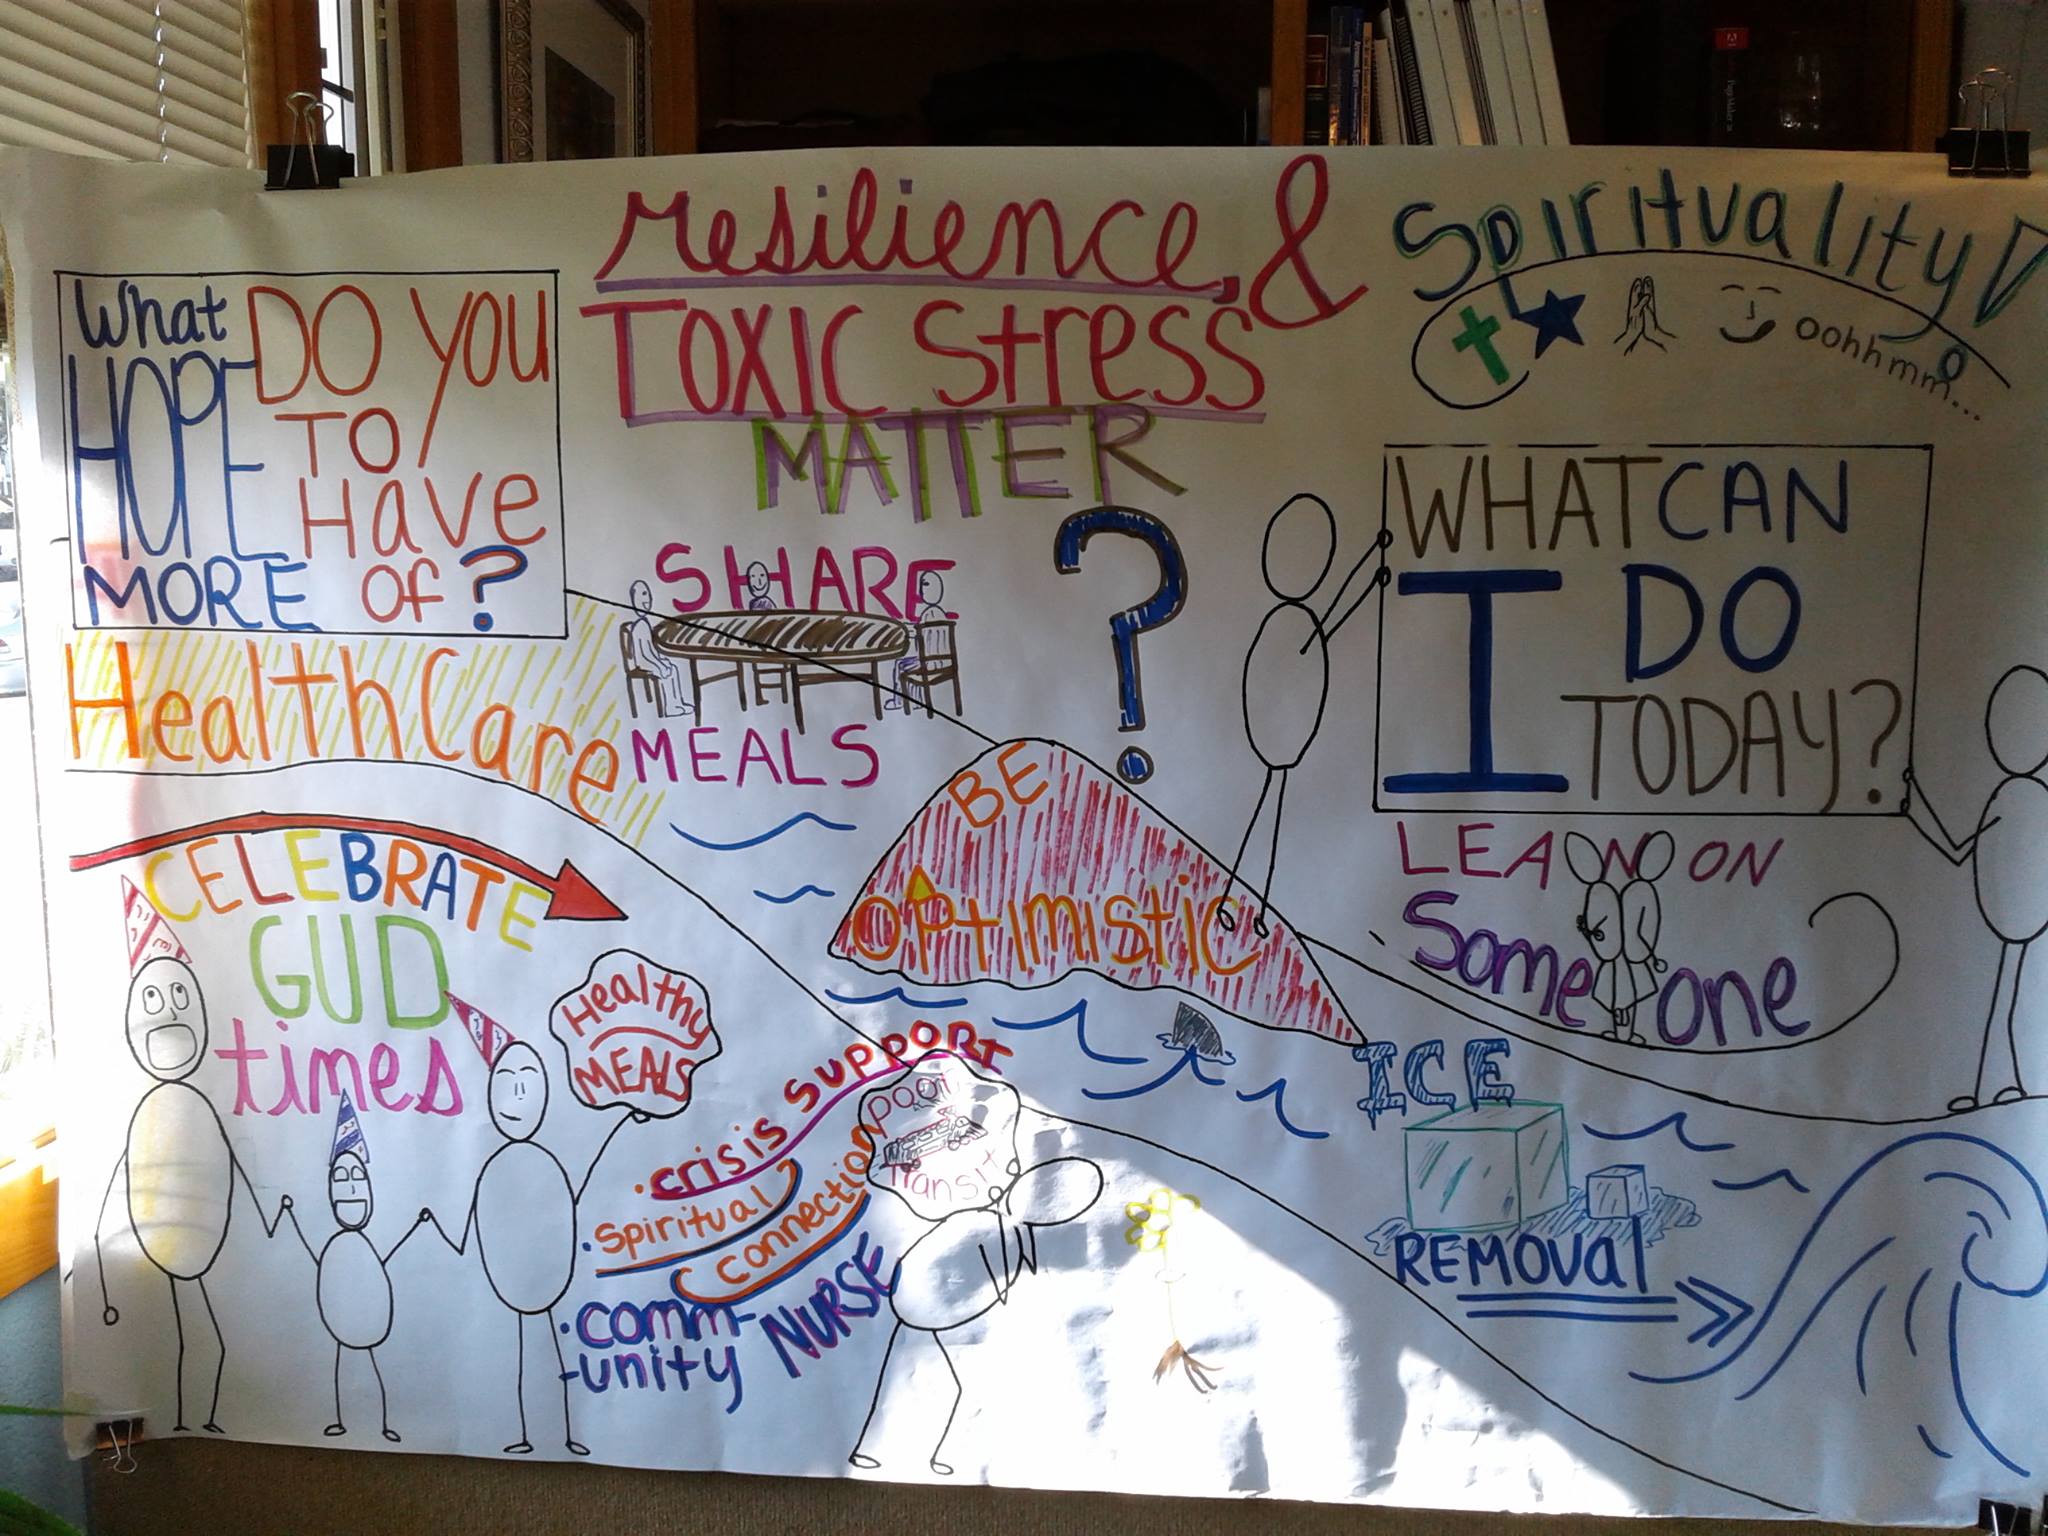 resilience, &
TOXIC Stress
MATTER
Spirituality!
oohhmm...
What DO YOU
HOPE TO
Have
MORE Of?
WHAT CAN
I DO
TODAY?
SHARE
MEALS
?
HealthCare
BE
OPtimistic
LEAN ON
Someone
CELEBRATE
GUD
times
Healthy
MEALS
ICE
REMOVAl
• Crisis SUPPORT
• spiritual
connection
• comm-
-unity NURSE
pool
Transit